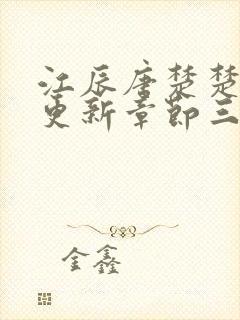 江辰唐楚楚
更新章节三
金鑫